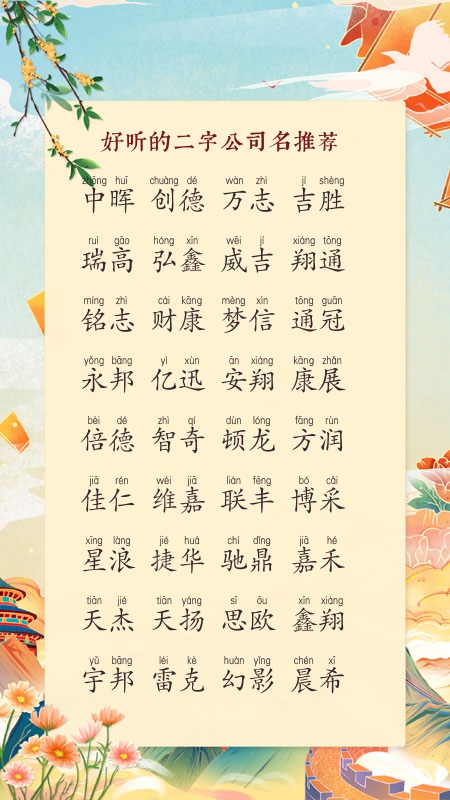 好听的二字公司名推荐
zhōng huī chuàng dé wàn zhì jí shèng
中晖 创德 万志 吉胜
ruì gāo hóng xīn wēi jí xiáng tōng
瑞高 弘鑫 威吉 翔通
míng zhì cái kāng mèng xìn tōng guān
铭志 财康 梦信 通冠
yǒng bāng yì xùn ān xiáng kāng zhǎn
永邦 亿迅 安翔 康展
bèi dé zhì qí dùn lóng fāng rùn
倍德 智奇 顿龙 方润
jiā rén wéi jiā lián fēng bó cǎi
佳仁 维嘉 联丰 博采
xīng làng jié huá chí dǐng jiā hé
星浪 捷华 驰鼎 嘉禾
tiān jié tiān yáng sī ōu xīn xiáng
天杰 天扬 思欧 鑫翔
yǔ bāng léi kè huàn yǐng chén xī
宇邦 雷克 幻影 晨希